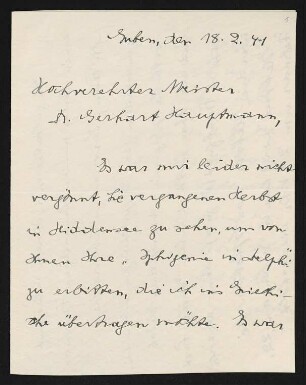 Guben, den 18. 2. 41
Hochverehrter Meister
Dr. Gerhart Hauptmann,
Es war mir leider nicht
vergönnt, Sie vergangenen Herbst
in Hiddensee zu sehen, um von
Ihnen Ihre „Iphigenie in Delphi“
zu erbitten, die ich ins Griechi-
sche übertragen möchte. Es war